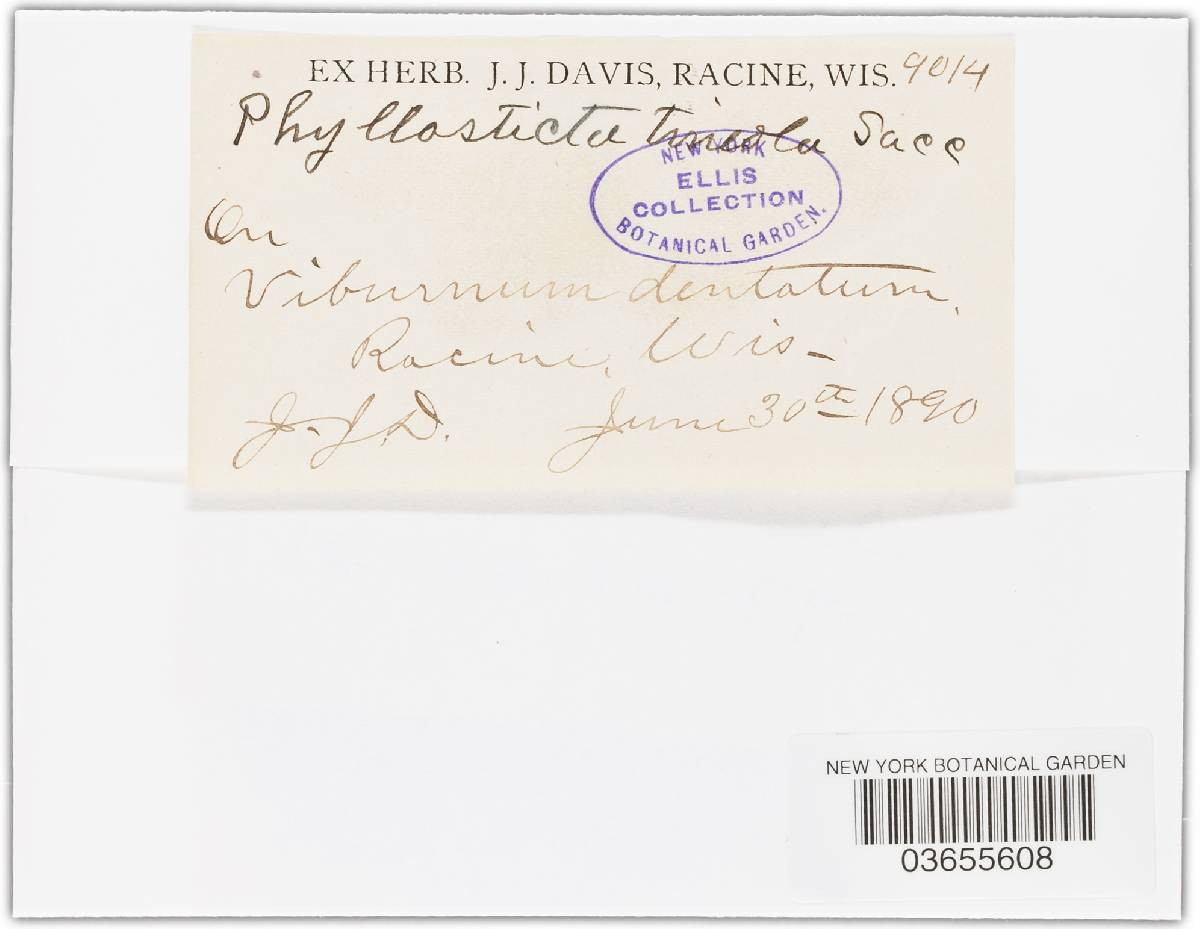 EX HERB. J. J. DAVIS, RACINE, WIS. 9014
Phyllosticta tineola Sacc
NEW YORK
ELLIS
COLLECTION
BOTANICAL GARDEN.
On
Viburnum dentatum.
Racine, Wis-
J. J. D. June 30th 1890
NEW YORK BOTANICAL GARDEN
03655608